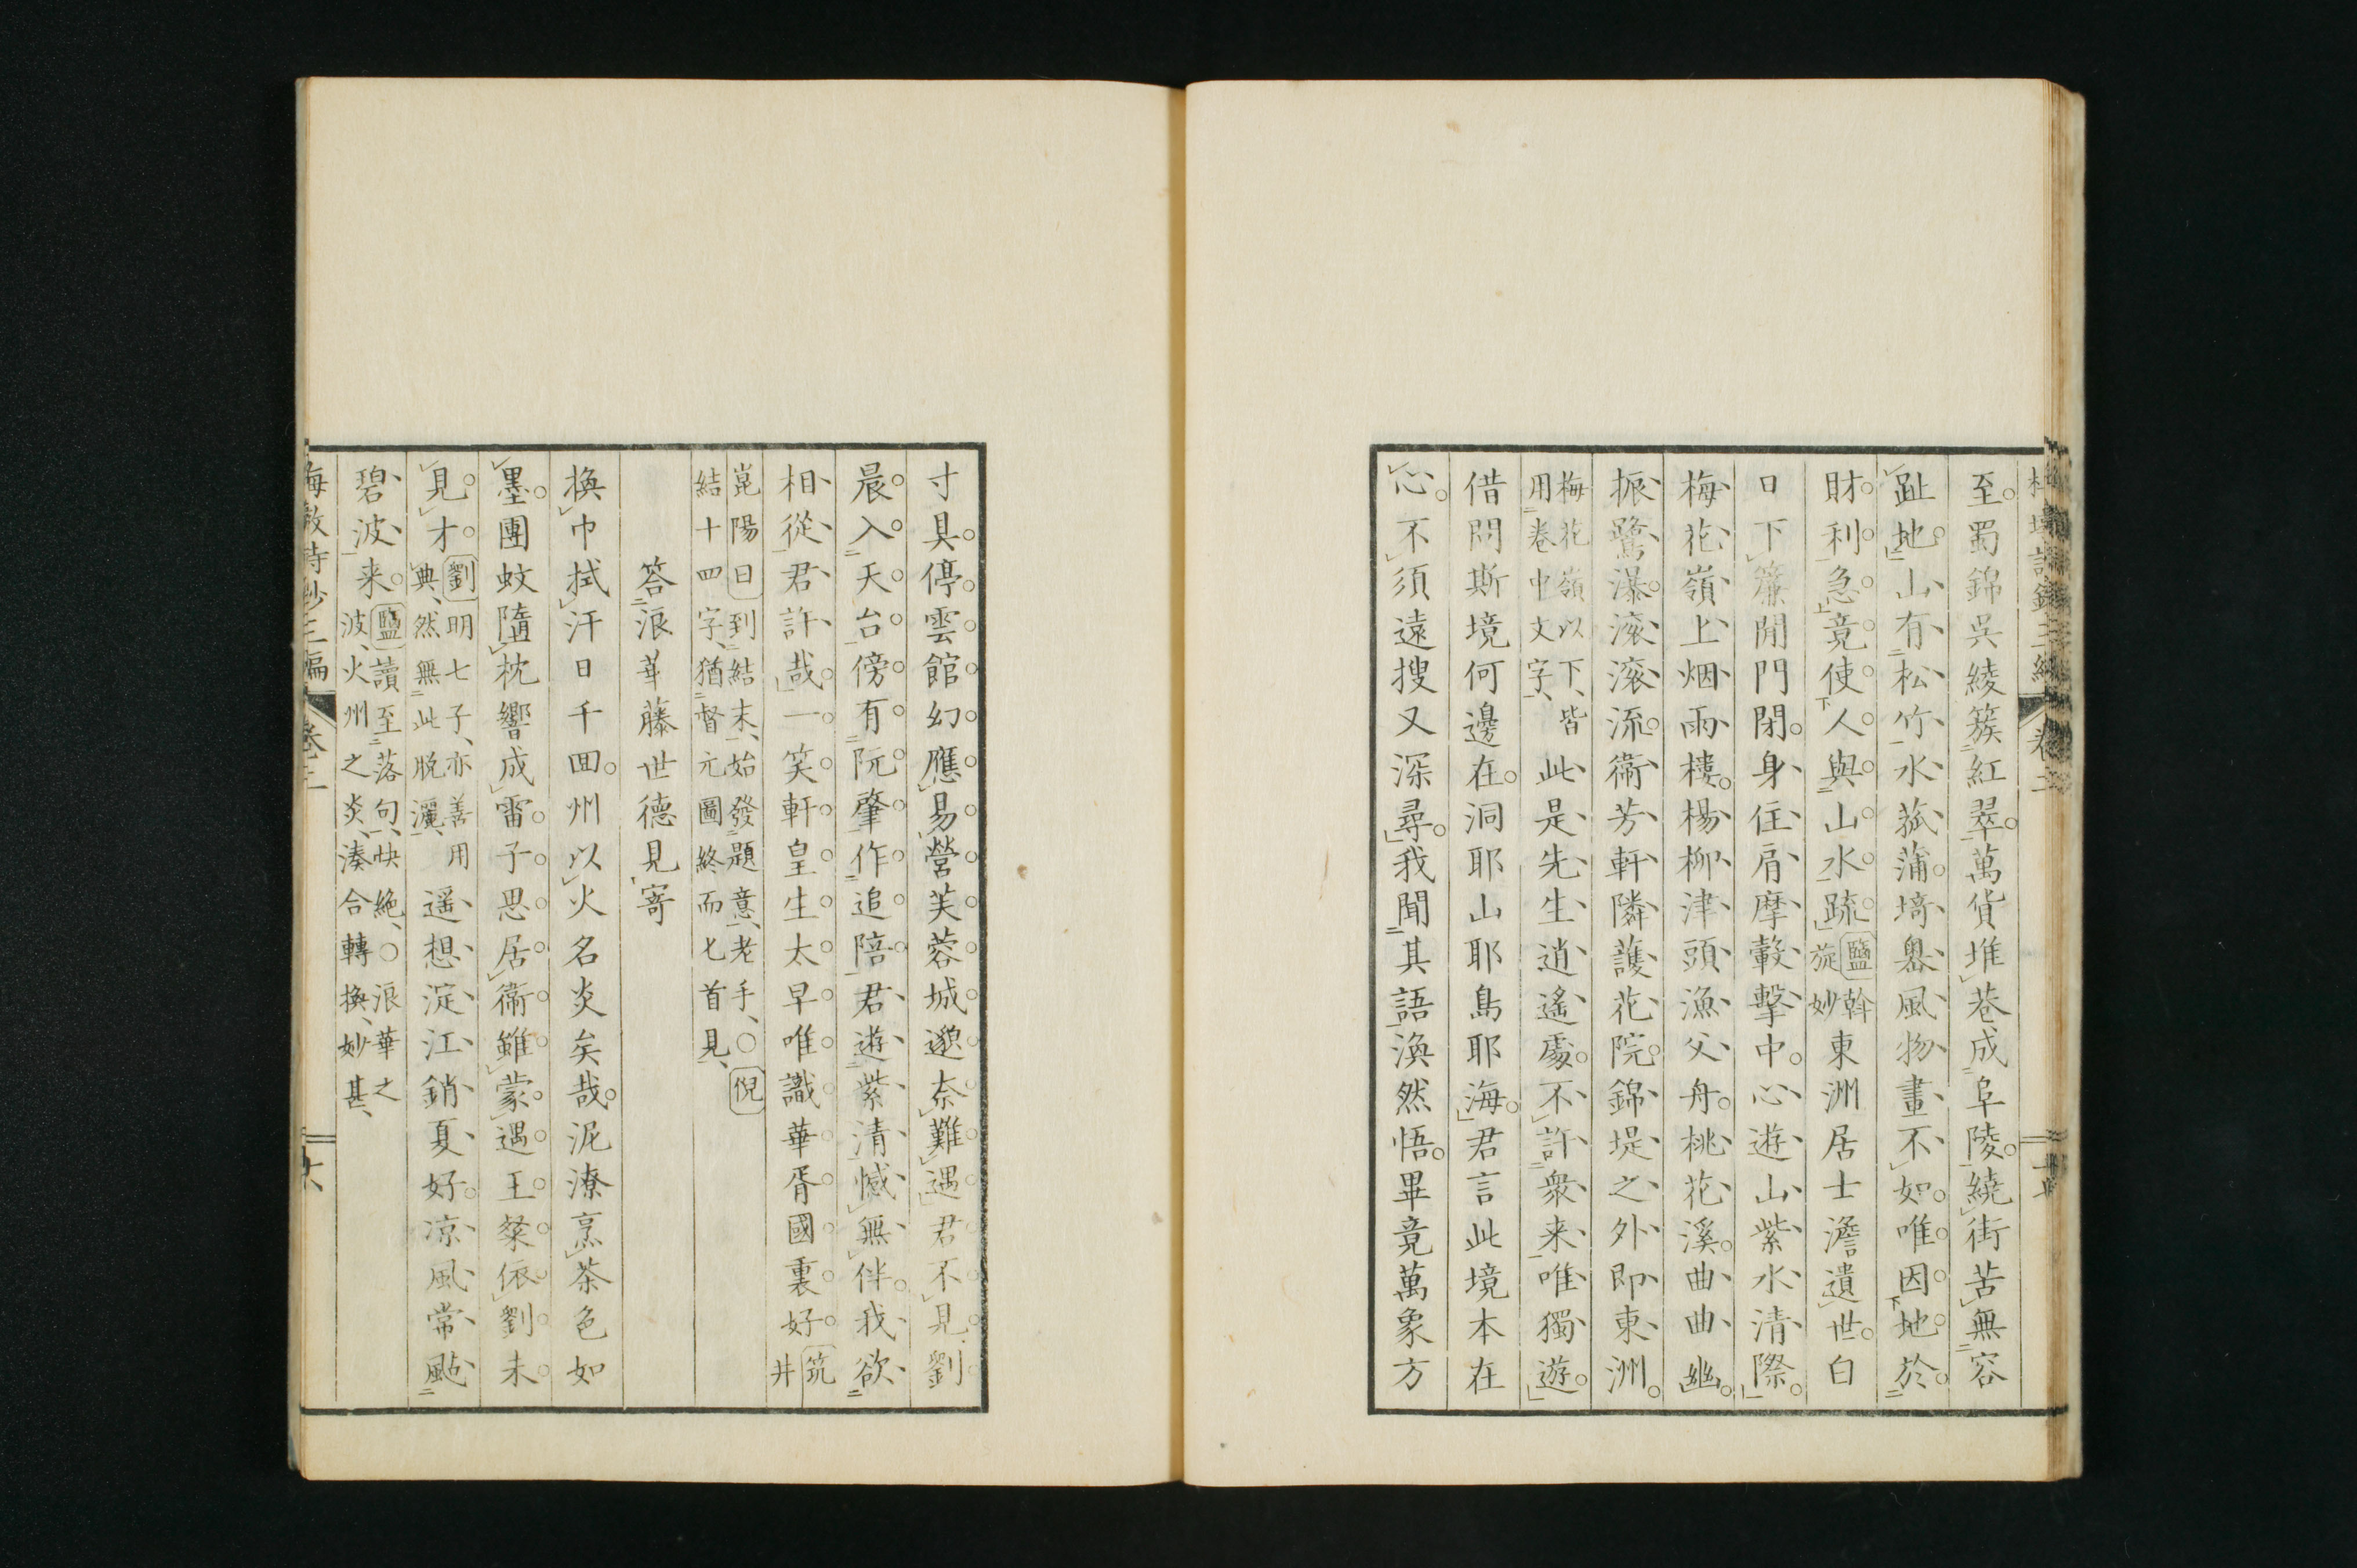 至蜀錦吳綾簇紅翠萬貨堆巷成阜陵繞街苦無容
趾地山有松竹水菰蒲埼嶴風物畫不如唯因地於
財利急竟使人與山水疏 鹽幹旋妙 東洲居士澹遺世白
日下簾閒門閉身住肩摩轂擊中心遊山紫水清際
梅花嶺上烟雨樓楊柳津頭漁父舟桃花溪曲曲幽
振鷺瀑滚滚流衞芳軒隣護花院錦堤之外即東洲
梅花嶺以下、皆
用卷中文字、
此是先生逍遙處不許衆来唯獨遊
借問斯境何邊在洞耶山耶島耶海君言此境本在
心不須遠搜又深尋我聞其語渙然悟畢竟萬象方
寸具停雲館幻應易營芙蓉城邈奈難遇君不見劉
晨入天台傍有阮肇作追陪君遊紫清憾無伴我欲
相從君許哉一笑軒皇生太早唯識華胥國裏好 筑井
崑陽曰到結末、始發題意、老手、○倪
結十四字、猶督元圖終而匕首見、
答浪華藤世德見寄
換巾拭汗日千回州以火名炎矣哉泥潦烹茶色如
墨團蚊墮枕響成雷子思居衞雖蒙遇王粲依劉未
見才
劉明七子、亦善用
典、然無此脱灑、
遥想淀江銷夏好凉風常颭
碧波来
鹽讀至落句、快絶、○浪華之
波、火州之炎、湊合轉換、妙甚、
梅墩詩鈔三編 卷三